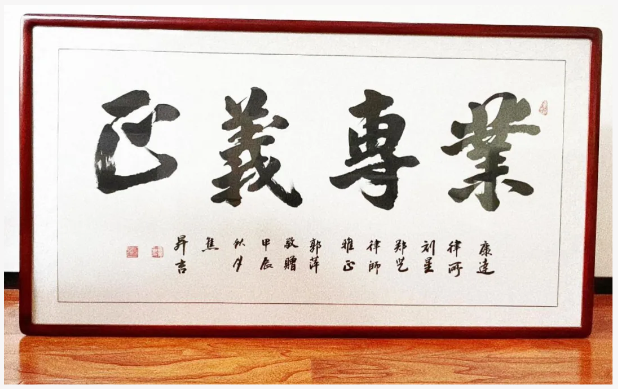 業專義正
康達
律所
刘星
郑艺
律師
雅正
郭萍
敬贈
甲辰
秋月
焦
昇吉